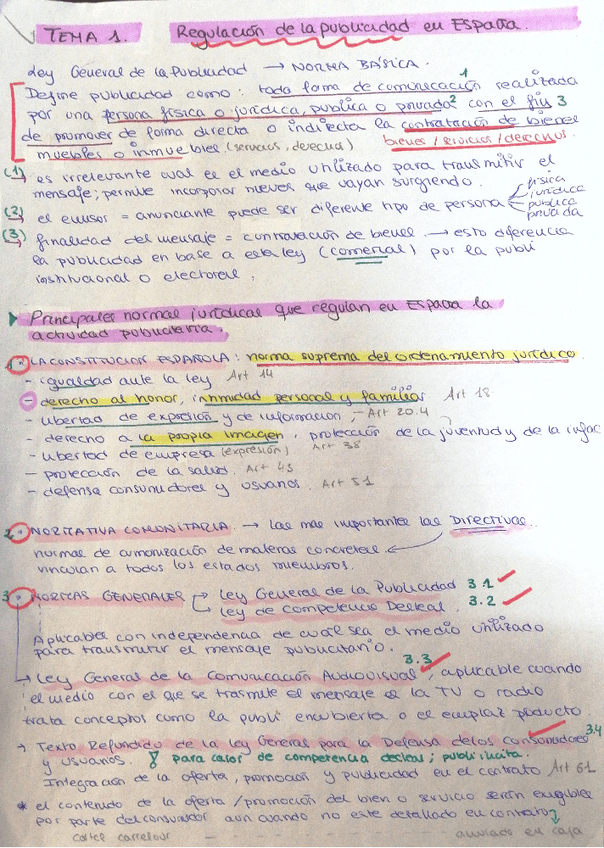 TEMA 1. Regulación de la publicidad en España.
Ley General de la Publicidad → NORMA BÁSICA.
Define publicidad como: toda forma de comunicación 1 realizada
por una persona física o jurídica, pública o privada 2 con el fin 3
de promover de forma directa o indirecta la contratación de bienes
muebles o inmuebles (servicios, derechos) bienes/servicios/derechos.
(1) es irrelevante cual es el medio utilizado para transmitir el
mensaje; permite incorporar nuevos que vayan surgiendo.
(2) el emisor = anunciante puede ser diferente tipo de persona física jurídica pública privada
(3) finalidad del mensaje = contratación de bienes → esto diferencia
la publicidad en base a esta ley (comercial) por la publi
institucional o electoral.
Principales normas jurídicas que regulan en España la
actividad publicitaria.
1 LA CONSTITUCION ESPAÑOLA: norma suprema del ordenamiento jurídico
- igualdad ante la ley Art 14
- derecho al honor, intimidad personal y familiar Art 18
- libertad de expresión y de información, - Art 20.4
- derecho a la propia imagen, protección de la juventud y de la infac
- libertad de empresa (expresión) Art 38
- protección de la salud. Art 43
- defensa consumidores y usuarios. Art 51
2 NORMATIVA COMUNITARIA. → Las más importantes las Directivas.
normas de armonización de materias concretas
vinculan a todos los estados miembros.
3 NORMAS GENERALES → Ley General de la Publicidad 3.1
→ Ley de Competencia Desleal. 3.2
Aplicables con independencia de cual sea el medio utilizado
para transmitir el mensaje publicitario.
3.3
→ Ley General de la Comunicación Audiovisual, aplicable cuando
el medio con el que se trasmite el mensaje es la TV o radio
trata conceptos como la publi encubierta o el emplaz producto
→ Texto Refundido de la Ley General para la Defensa de los Consumidores 3.4
y Usuarios. para casos de competencia desleal; publi ilícita.
Integración de la oferta, promoción y publicidad en el contrato Art 61
* el contenido de la oferta/promoción del bien o servicio serán exigibles
por parte del consumidor aun cuando no este detallado en contrato
cartel carrefour anulado en caja